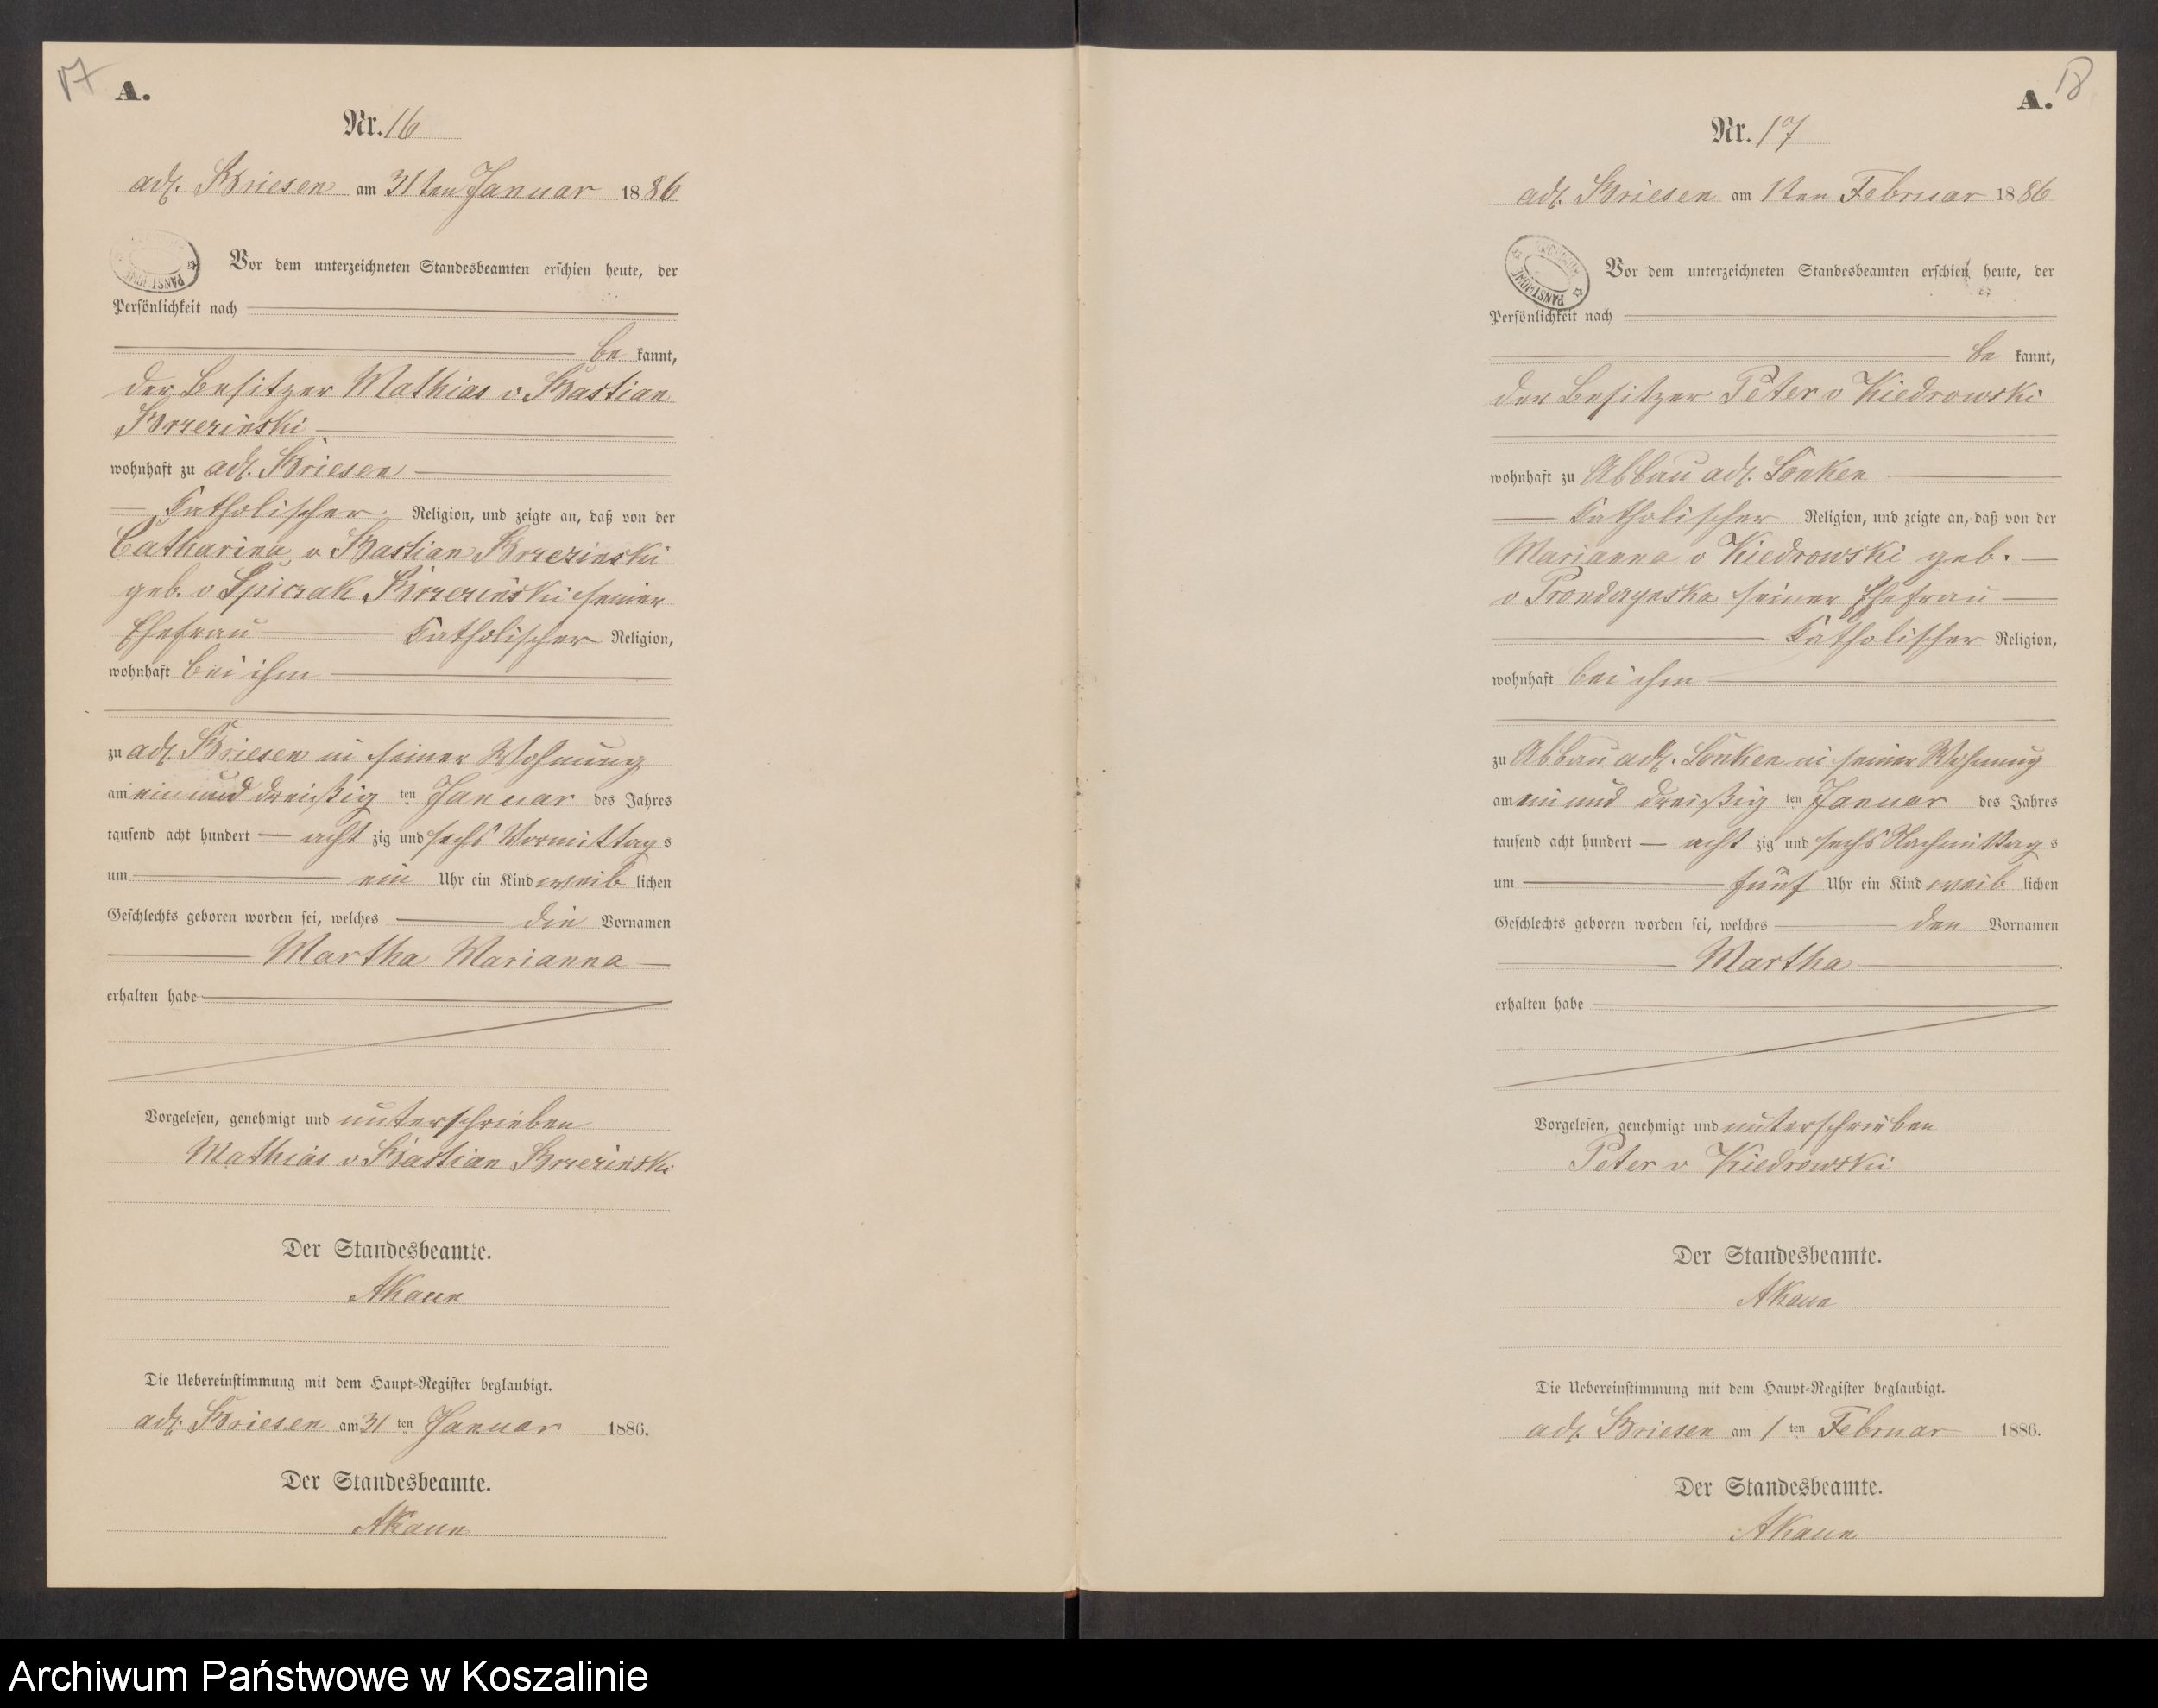 17
A.
Nr. 16
adl. Briesen am 31ten Januar 1886
Vor dem unterzeichneten Standesbeamten erschien heute, der
Persönlichkeit nach
be kannt,
der Besitzer Mathias v Bastian
Brzezinski
wohnhaft zu adl. Briesen
Katholischer Religion, und zeigte an, daß von der
Catharina v Bastian Brzezinski
geb. v Spiczak Brzezinski seiner
Ehefrau Katholischer Religion,
wohnhaft bei ihm
zu adl. Briesen in seiner Wohnung
am ein und dreißig ten Januar des Jahres
tausend acht hundert acht zig und sechs Vormittags
um ein Uhr ein Kind weib lichen
Geschlechts geboren worden sei, welches die Vornamen
Martha Marianna
erhalten habe
Vorgelesen, genehmigt und unterschrieben
Mathias v Bastian Brzezinski
Der Standesbeamte.
AKaun
Die Uebereinstimmung mit dem Haupt-Register beglaubigt.
adl. Briesen am 31 ten Januar 1886.
Der Standesbeamte.
AKaun
18
A.
Nr. 17
adl. Briesen am 1ten Februar 1886
Vor dem unterzeichneten Standesbeamten erschien heute, der
Persönlichkeit nach
be kannt,
der Besitzer Peter v Kiedrowski
wohnhaft zu Abbau adl. Lonken
Katholischer Religion, und zeigte an, daß von der
Marianna v Kiedrowski geb.
v Prondzynska seiner Ehefrau
Katholischer Religion,
wohnhaft bei ihm
zu Abbau adl. Lonken in seiner Wohnung
am ein und dreißig ten Januar des Jahres
tausend acht hundert acht zig und sechs Nachmittags
um fünf Uhr ein Kind weib lichen
Geschlechts geboren worden sei, welches den Vornamen
Martha
erhalten habe
Vorgelesen, genehmigt und unterschrieben
Peter v Kiedrowski
Der Standesbeamte.
AKaun
Die Uebereinstimmung mit dem Haupt-Register beglaubigt.
adl. Briesen am 1 ten Februar 1886.
Der Standesbeamte.
AKaun
Archiwum Państwowe w Koszalinie